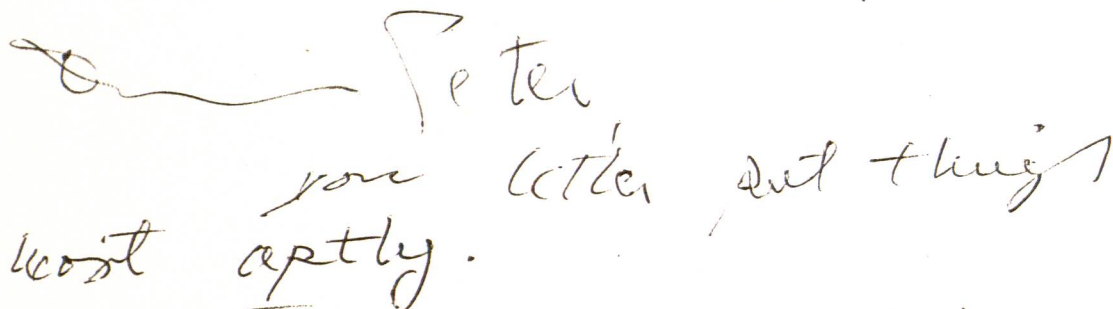 Dear Peter
your letter put things
most aptly.